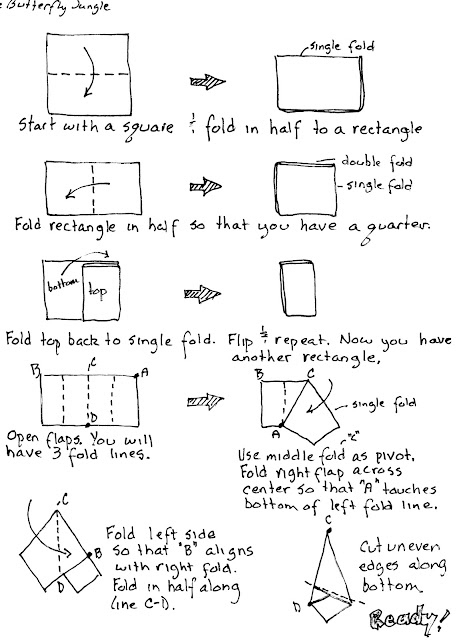 Butterfly Jungle
single fold
Start with a square & fold in half to a rectangle
double fold
single fold
Fold rectangle in half so that you have a quarter.
bottom
top
Fold top back to single fold. Flip & repeat. Now you have
another rectangle.
B
C
A
D
Open flaps. You will
have 3 fold lines.
B
C
single fold
A
"L"
Use middle fold as pivot.
Fold right flap across
center so that "A" touches
bottom of left fold line.
C
B
D
Fold left side
so that "B" aligns
with right fold.
Fold in half along
line C-D.
C
D
Cut uneven
edges along
bottom
Ready!